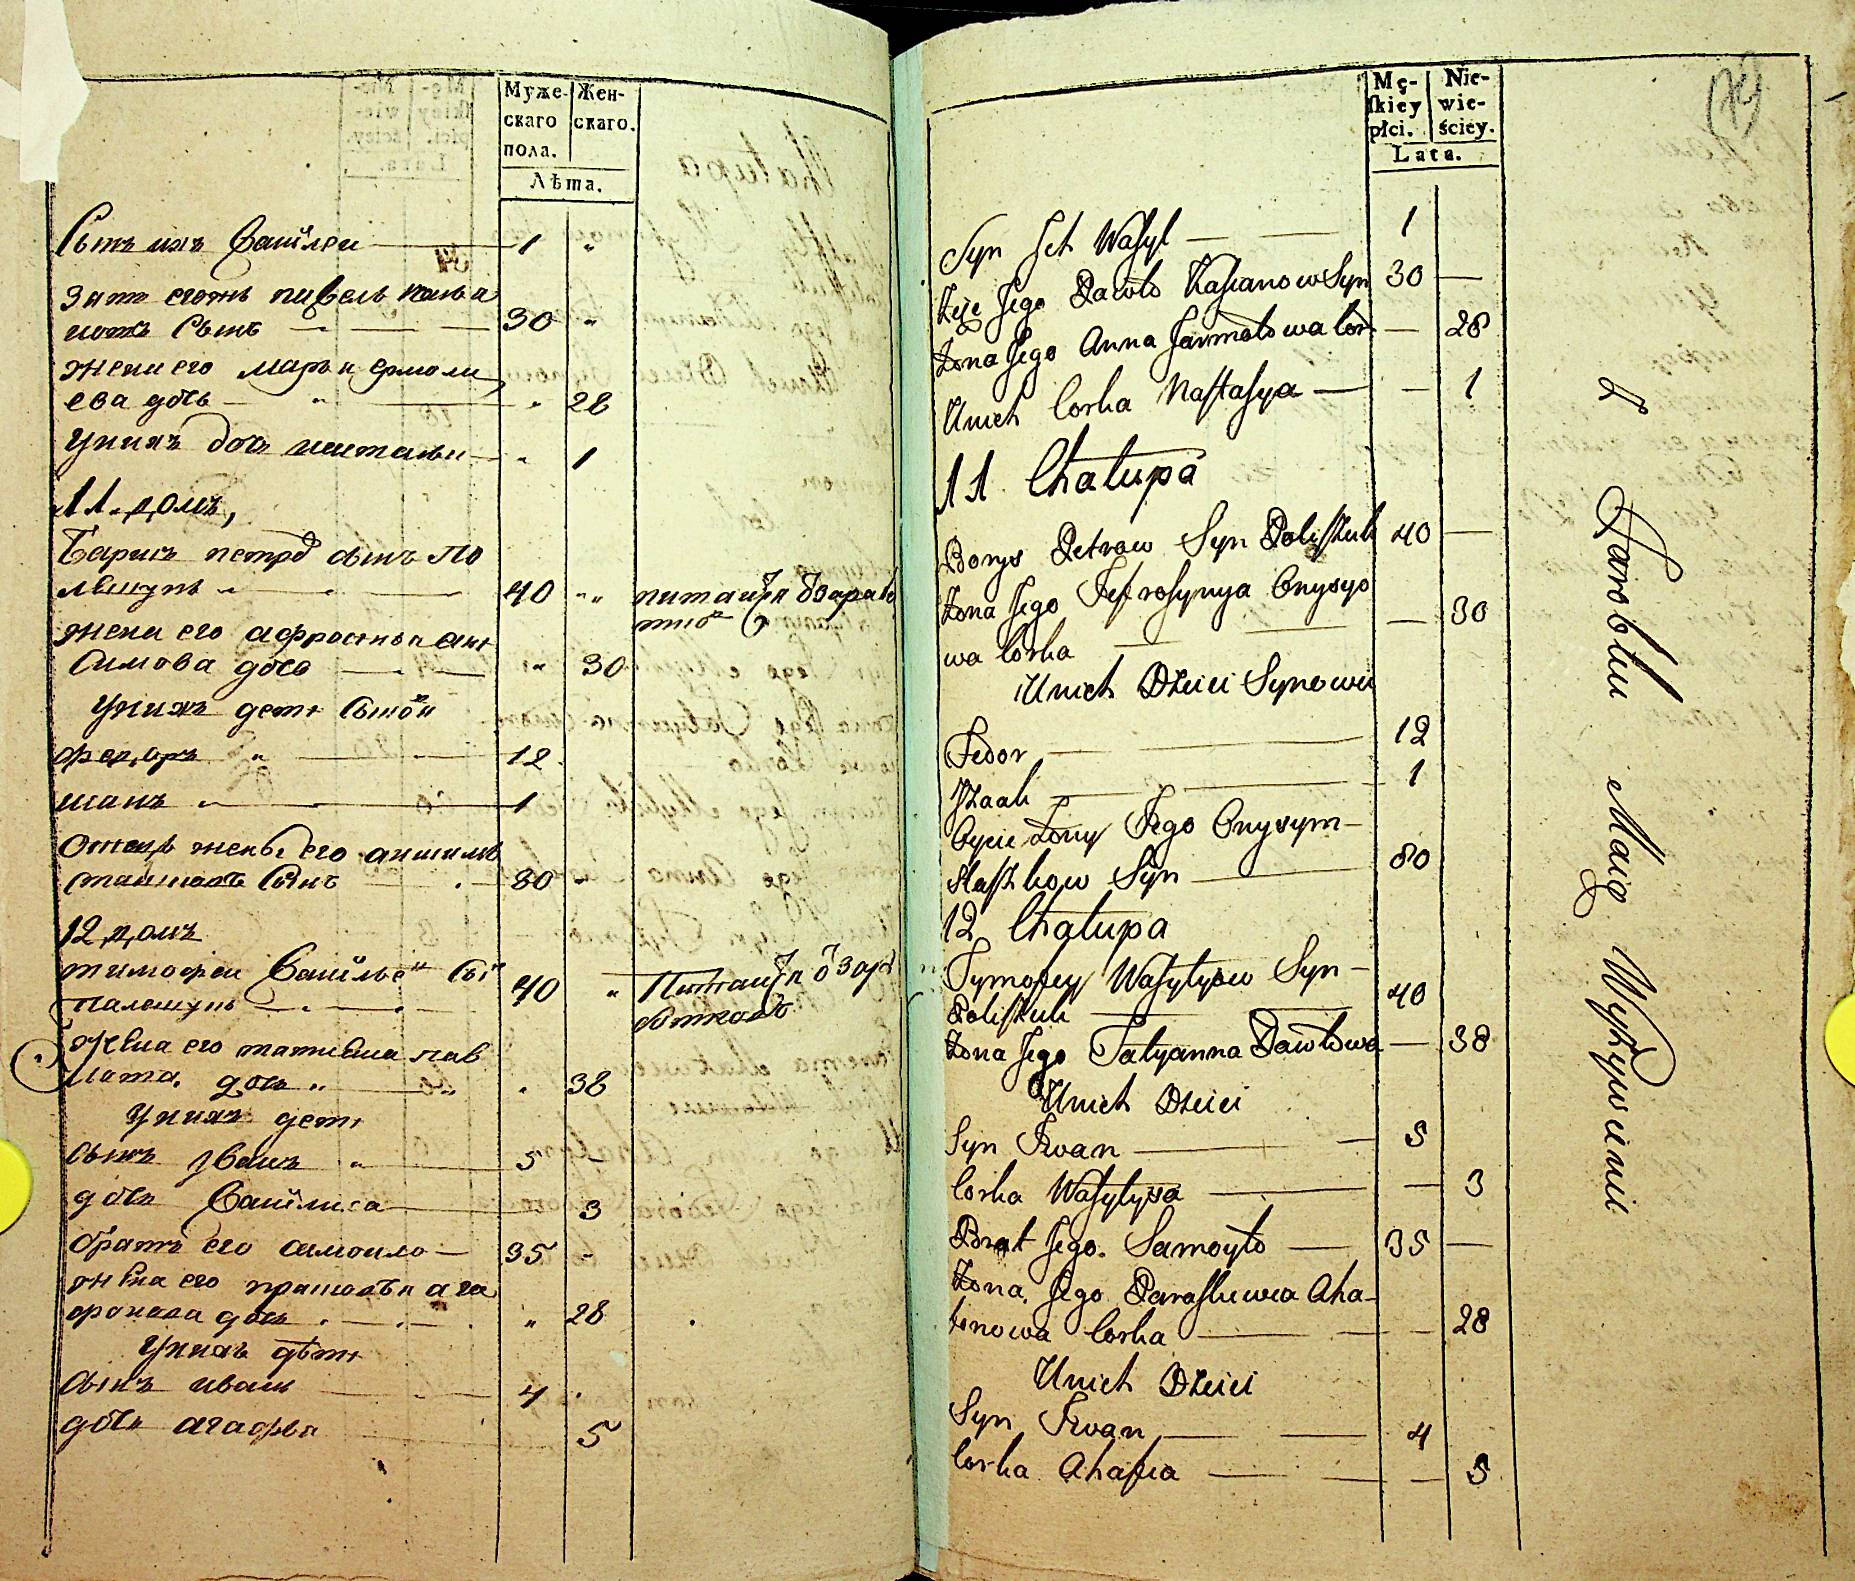 Муже-
скаго
пола.
Жен-
скаго.
Лѣта.
Сынъ ихъ Василеи 1
зят егожъ павелъ касья
новъ Сынъ 30
жена его марья ермоли
ева дочь 28
Унихъ дочь настасья 1
11. домъ,
Барисъ петро сынъ По
лешукъ 40
жена его афросинья они
симова дочь 30
Унихъ дети Сынов
федоръ 12
исакъ 1
Отецъ жены его анисимъ
Сынъ 80
12 домъ
тимофеи Василье Сы
палешукъ 40
жена его татиана пав
лова дочь 38
Унихъ дети
Сынъ Иванъ 5
дочь Василиса 3
братъ его самоило 35
жена его прасковья ага
фонава дочь 28
Унихъ дѣти
Сынъ иванъ 4
дочь агафья 5
питаитца
Питаитца
Mę-
skiey
płci.
Nie-
wie-
ściey.
Lata.
Syn Ich Wasyl 1
Zięc Jego Pawło Kasianow Syn 30
Zona Jego Anna Jarmołowa Cor 28
Unich Corka Nastasya 1
11 Chałupa
Borys Petrow Syn Poliszuk 40
Zona Jego Jefrosynya Onysyo
wa Corka 30
Unich Dzieci Synowie
Fedor 12
Izaak 1
Oycie Zony Jego Onysym
Staszkow Syn 80
12 Chałupa
Tymofiey Wasylyow Syn
Poliszuk 40
Zona Jego Tatyanna Pawłowa 38
Unich Dzieci
Syn Iwan 5
Corka Wasylysa 3
Brat Jego Samoyło 35
Zona Jego Paraskiewia Aha-
fonowa Corka 28
Unich Dzieci
Syn Iwan 4
Corka Ahafia 5
Z Parobku Maią Wyżywienie